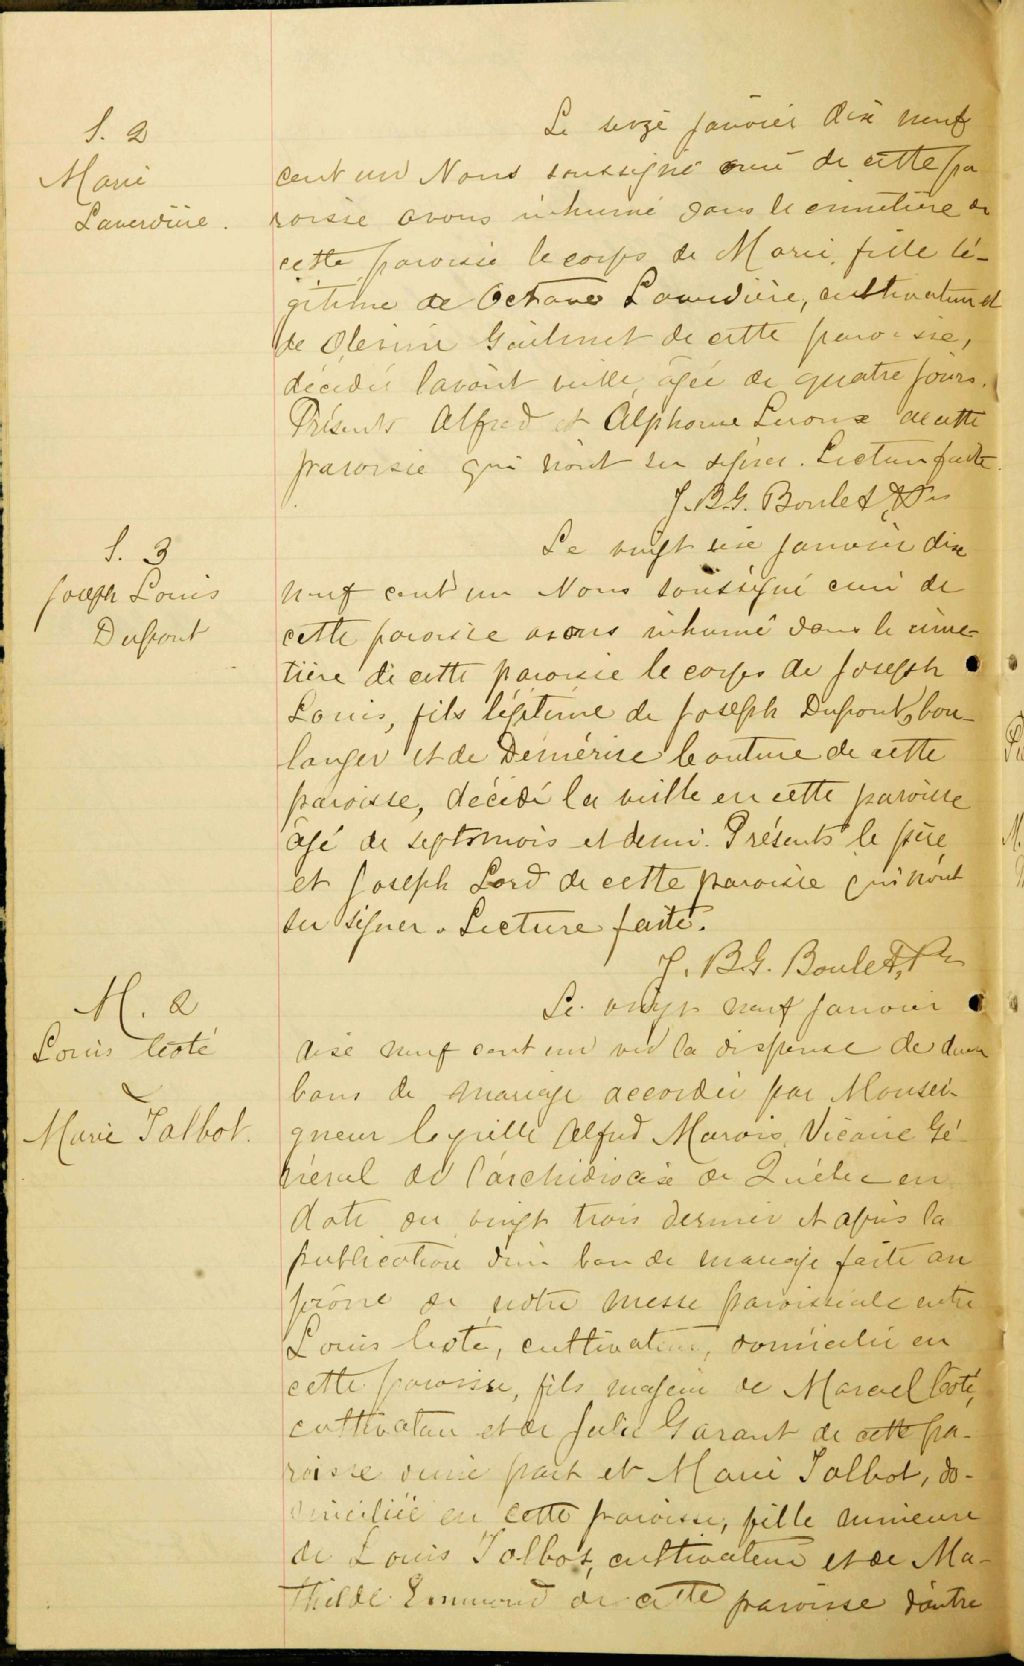 S. 2
Marie
Laverdière.
Le seize janvier dix neuf
cent un Nous soussigné curé de cette pa
roisse avons inhumé dans le cimetière de
cette paroisse le corps de Marie, fille lé-
gitime de Octave Laverdière, cultivateur et
de Olésine Goulmet de cette paroisse,
décédée l'avant veille âgée de quatre jours.
Présents Alfred et Alphonse Leroux de cette
paroisse qui n'ont su signer. Lecture faite.
J.B.G. Boulet Ptre
S. 3
Joseph Louis
Dupont
Le vingt six janvier dix
neuf cent un Nous soussigné curé de
cette paroisse avons inhumé dans le cime-
tière de cette paroisse le corps de Joseph
Louis, fils légitime de Joseph Dupont, bou-
langer et de Démérise Couture de cette
paroisse, décédé la veille en cette paroisse
âgé de sept mois et demi. Présents le père
et Joseph Lord de cette paroisse qui n'ont
su signer. Lecture faite.
J. B.G. Boulet, Ptre
M. 2
Louis Coté
&
Marie Talbot.
Le vingt neuf janvier
dix neuf cent un vu la dispense de deux
bans de mariage accordée par Monsei-
gneur Cyrille Alfred Marois Vicaire Gé-
néral de l'archidiocèse de Québec en
date du vingt trois dernier et après la
publication d'un ban de mariage faite au
prône de notre messe paroissiale entre
Louis Coté, cultivateur, domicilié en
cette paroisse, fils majeur de Marcel Coté,
cultivateur et de Julie Garant de cette pa-
roisse d'une part et Marie Talbot, do-
miciliée en cette paroisse, fille mineure
de Louis Talbot, cultivateur et de Ma-
thilde Emmond de cette paroisse d'autre